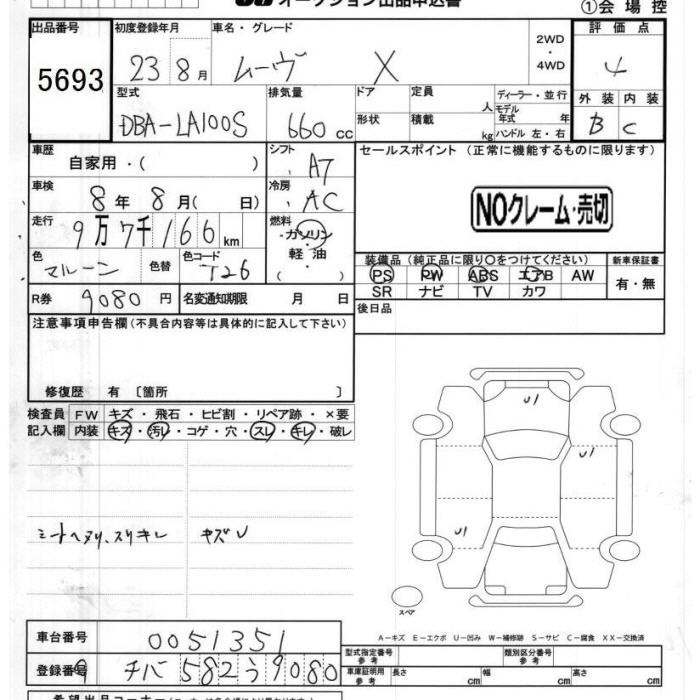 オークション出品申込書
①会場控
出品番号 初度登録年月 車名・グレード 2WD・4WD 評価点
5693 23年8月 ムーヴ X 4
型式 排気量 ドア 定員 人 ディーラー・並行 外装 内装
DBA-LA100S 660cc 形状 積載 kg モデル年式 年 ハンドル 左・右 B C
車歴 自家用・( ) シフト A7 セールスポイント (正常に機能するものに限ります)
車検 8年8月( 日) 冷房 AC NOクレーム・売切
走行 9万7千166km 燃料 ガソリン・軽油 ( )
色 マルーン 色替 色コード T26 装備品 (純正品に限り○をつけてください) 新車保証書
PS PW ABS エアB AW 有・無
SR ナビ TV カワ
R券 9080円 名変通知期限 月 日
後日品
注意事項申告欄(不具合内容等は具体的に記入して下さい)
修復歴 有 〔箇所 〕
検査員 FW キズ・飛石・ヒビ割・リペア跡・×要
記入欄 内装 キズ・汚レ・コゲ・穴・スレ・キレ・破レ
U1
U1
U1
シートヘタリ、スリキレ キズU
スペア
A-キズ E-エクボ U-凹み W-補修跡 S-サビ C-腐食 XX-交換済
車台番号 0051351
型式指定番号 参考 類別区分番号 参考
登録番号 チバ 582 う 9080
車庫証明用 参考 長さ cm 幅 cm 高さ cm
希望出品コーナー